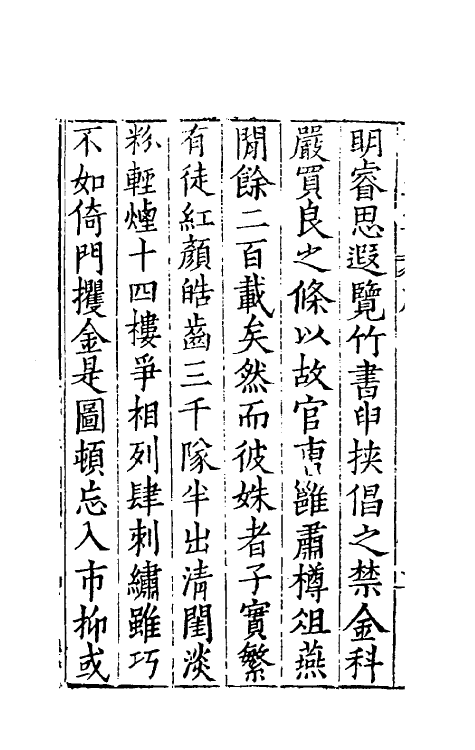 明睿思遐覽竹書申挟倡之禁金科
嚴買良之條以故官雝肅樽俎燕
閒餘二百載矣然而彼姝者子實繁
有徒紅顏皓齒三千隊半出清閨淡
粉輕煙十四樓爭相列肆刺繡雖巧
不如倚門攫金是圖頓忘入市抑或